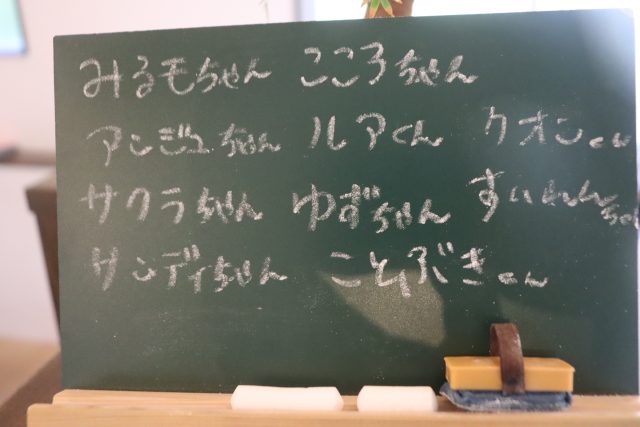 みるモちゃん こころちゃん
アンジュちゃん ルアくん クオンくん
サクラちゃん ゆずちゃん すいれんちゃん
サンディちゃん ことぶきくん